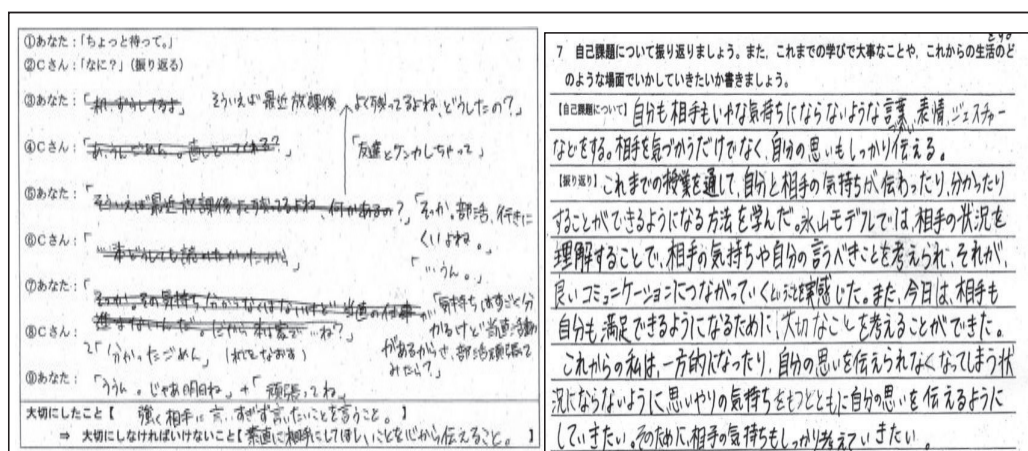 ①あなた：「ちょっと待って。」
②Cさん：「なに？」(振り返る)
③あなた：「 そういえば最近放課後よく残ってるよね、どうしたの？」
④Cさん：「 」「友達とケンカしちゃって」
⑤あなた：「そういえば最近放課後よく残ってるよね、何かあるの？」「そっか。部活、行きに
くいよね。」
⑥Cさん：「 」「…うん。」
⑦あなた：「 」「気持ちはすごく分
かるけど当直活動
があるからさ、部活頑張って
みたら？」
⑧Cさん：「分かったごめん」
⑨あなた：「ううん。じゃあ明日ね」＋「頑張ってね」
大切にしたこと【 強く相手に言いすぎず言いたいことを言うこと。 】
⇒ 大切にしなければいけないこと【素直に相手にしてほしいことを心から伝えること。】
7 自己課題について振り返りましょう。また、これまでの学びで大事なことや、これからの生活のど
のような場面でいかしていきたいか書きましょう。
【自己課題について】自分も相手もいやな気持ちにならないような言葉、表情、ジェスチャー
などをする。相手を気づかうだけでなく、自分の思いもしっかり伝える。
【振り返り】これまでの授業を通して、自分と相手の気持ちが伝わったり、分かったり
することができるようになる方法を学んだ。氷山モデルでは、相手の状況を
理解することで、相手の気持ちや自分の言うべきことを考えられ、それが、
良いコミュニケーションにつながっていくということを実感じた。また、今日は、相手も
自分も満足できるようになるために、大切なことを考えることができた。
これからの私は、一方的になったり、自分の思いを伝えられなくなってしまう状
況にならないように思いやりの気持ちをもつとともに自分の思いを伝えるように
していきたい。そのために、相手の気持ちもしっかり考えていきたい。